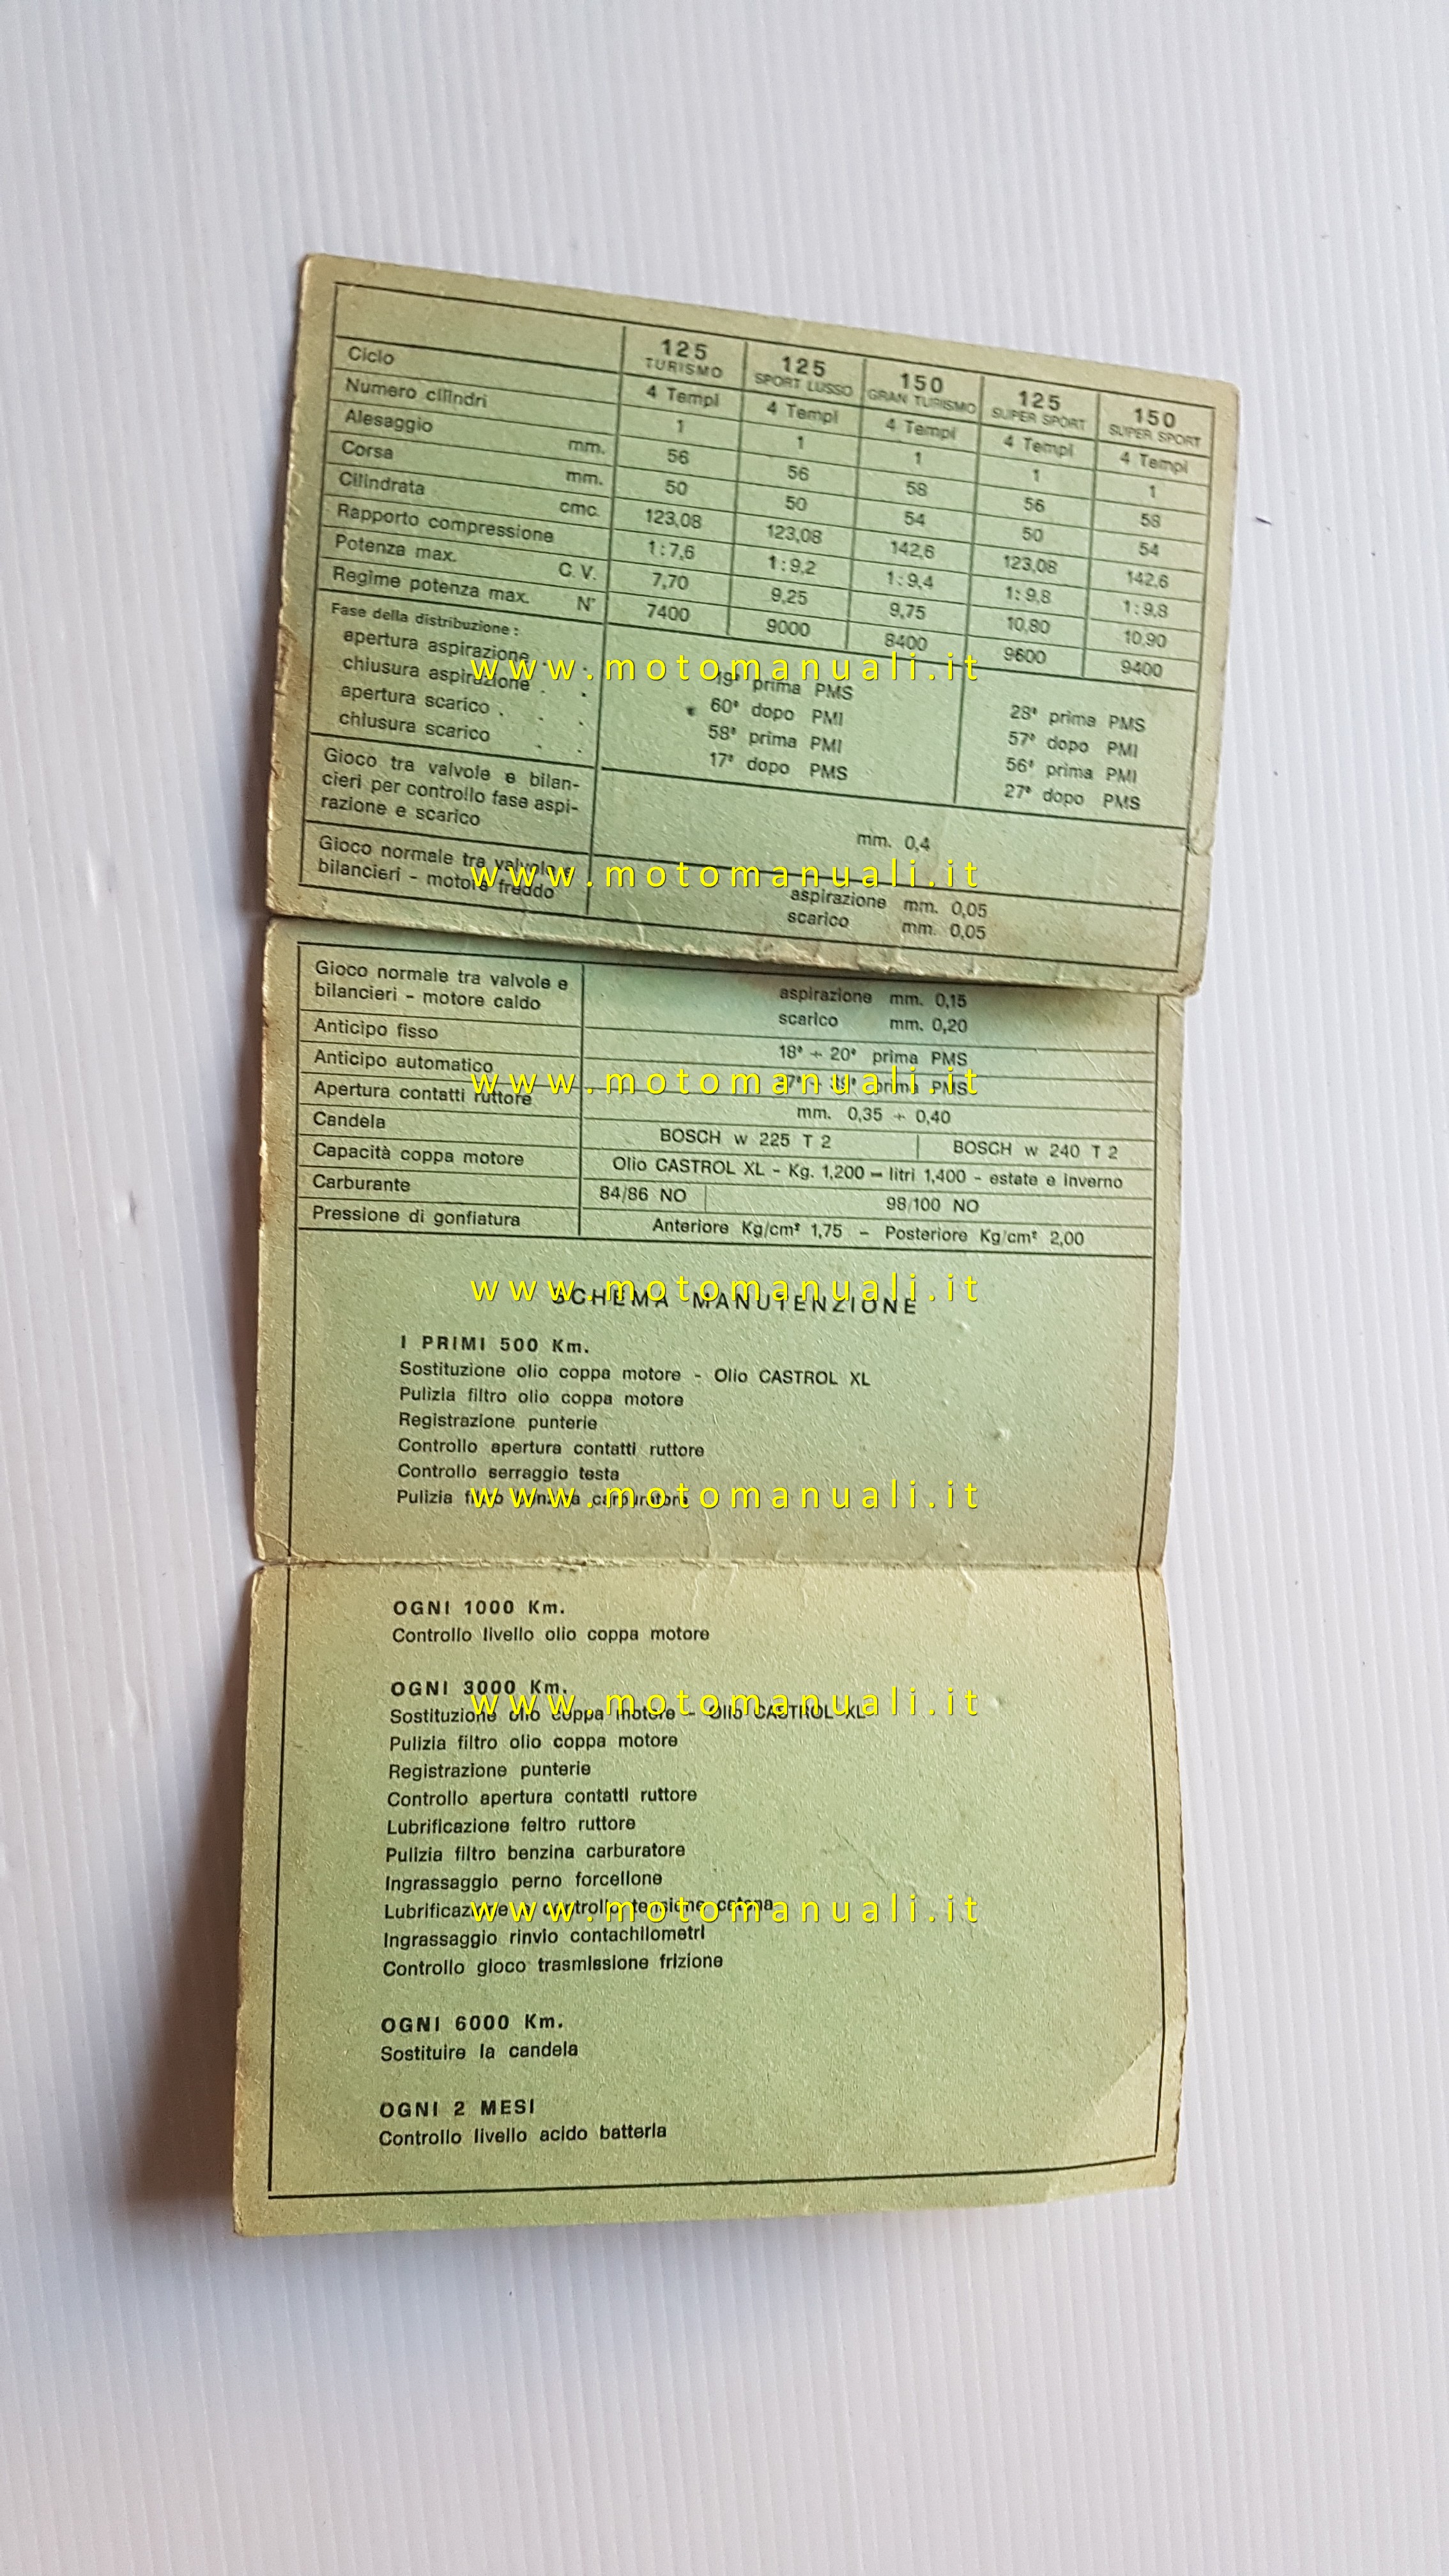 125 TURISMO 125 SPORT LUSSO 150 GRAN TURISMO 125 SUPER SPORT 150 SUPER SPORT
Ciclo 4 Tempi 4 Tempi 4 Tempi 4 Tempi 4 Tempi
Numero cilindri 1 1 1 1 1
Alesaggio mm. 56 56 58 56 58
Corsa mm. 50 50 54 50 54
Cilindrata cmc. 123,08 123,08 142,6 123,08 142,6
Rapporto compressione 1:7,6 1:9,2 1:9,4 1:9,8 1:9,8
Potenza max. C.V. 7,70 9,25 9,75 10,80 10,90
Regime potenza max. N° 7400 9000 8400 9600 9400
Fase della distribuzione :
apertura aspirazione . . 19° prima PMS 28° prima PMS
chiusura aspirazione . . 60° dopo PMI 57° dopo PMI
apertura scarico . . . 58° prima PMI 56° prima PMI
chiusura scarico . . 17° dopo PMS 27° dopo PMS
Gioco tra valvole e bilan-
cieri per controllo fase aspi-
razione e scarico mm. 0,4
Gioco normale tra valvole e aspirazione mm. 0,05
bilancieri - motore freddo scarico mm. 0,05
Gioco normale tra valvole e aspirazione mm. 0,15
bilancieri - motore caldo scarico mm. 0,20
Anticipo fisso 18° ÷ 20° prima PMS
Anticipo automatico prima PMS
Apertura contatti ruttore mm. 0,35 ÷ 0,40
Candela BOSCH w 225 T 2 BOSCH w 240 T 2
Capacità coppa motore Olio CASTROL XL - Kg. 1,200 = litri 1,400 - estate e inverno
Carburante 84/86 NO 98/100 NO
Pressione di gonfiatura Anteriore Kg/cm² 1,75 - Posteriore Kg/cm² 2,00
SCHEMA MANUTENZIONE
I PRIMI 500 Km.
Sostituzione olio coppa motore - Olio CASTROL XL
Pulizia filtro olio coppa motore
Registrazione punterie
Controllo apertura contatti ruttore
Controllo serraggio testa
Pulizia filtro benzina carburatore
OGNI 1000 Km.
Controllo livello olio coppa motore
OGNI 3000 Km.
Sostituzione olio coppa motore - Olio CASTROL XL
Pulizia filtro olio coppa motore
Registrazione punterie
Controllo apertura contatti ruttore
Lubrificazione feltro ruttore
Pulizia filtro benzina carburatore
Ingrassaggio perno forcellone
Lubrificazione e controllo tensione catena
Ingrassaggio rinvio contachilometri
Controllo gioco trasmissione frizione
OGNI 6000 Km.
Sostituire la candela
OGNI 2 MESI
Controllo livello acido batteria
www.motomanuali.it
www.motomanuali.it
www.motomanuali.it
www.motomanuali.it
www.motomanuali.it
www.motomanuali.it
www.motomanuali.it